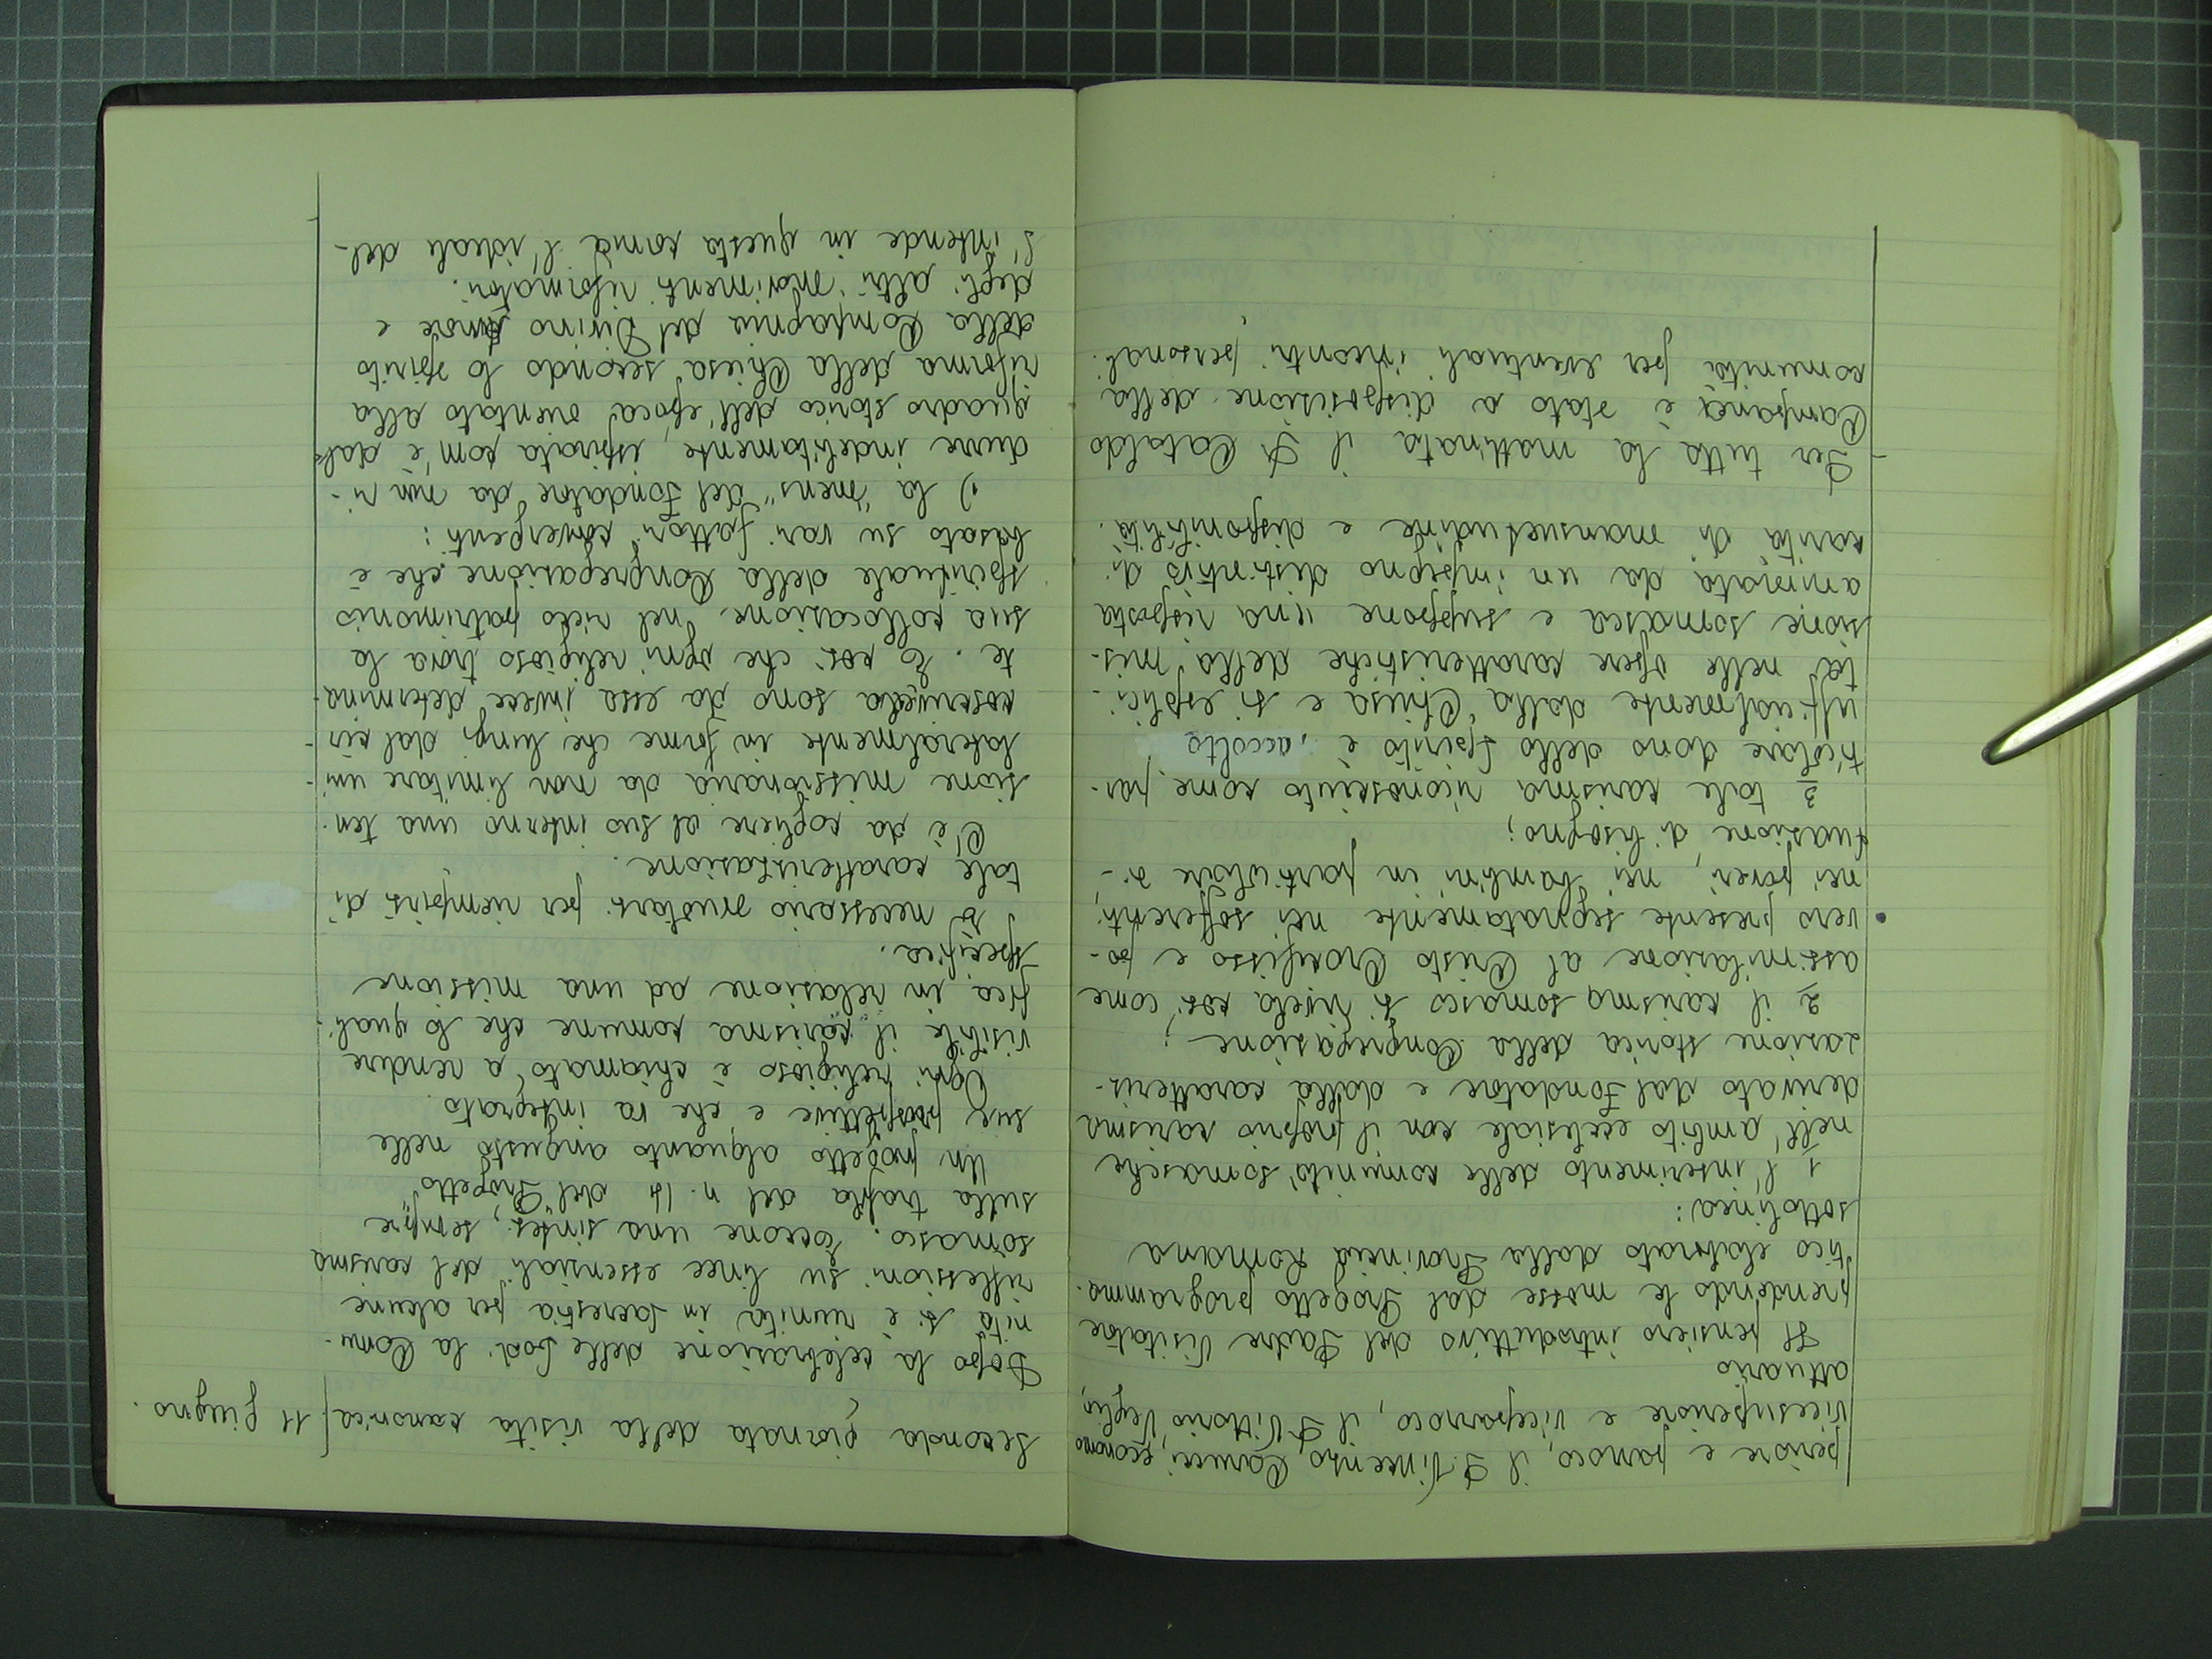 periore e parroco, il P. Vincenzo Carucci, economo,
vicesuperiore e viceparroco, il P. Vittorio Veglio,
attuario
Il pensiero introduttivo del Padre Visitatore
prendendo le mosse dal Progetto programma-
tico elaborato dalla Provincia Romana
sottolinea:
1 l'inserimento delle comunità somasche
nell'ambito ecclesiale con il proprio carisma
derivato dal Fondatore e dalla caratteriz-
zazione storica della Congregazione;
2 il carisma somasco si rivela così come
assimilazione al Cristo Crocifisso e po-
vero presente segnatamente nei sofferenti,
nei poveri, nei bambini in particolare si-
tuazione di bisogno;
3 tale carisma riconosciuto come par-
ticolare dono dello Spirito è accolto
ufficialmente dalla Chiesa e si esplici-
ta nelle opere caratteristiche della mis-
sione somasca e suppone una risposta
animata da un impegno distintivo di
carità di mansuetudine e disponibilità.
Per tutta la mattinata il P. Cataldo
Campana è stato a disposizione della
comunità per eventuali incontri personali.
Seconda giornata della visita canonica
11 giugno.
Dopo la celebrazione delle Lodi la Comu-
nità si è riunita in sacrestia per alcune
riflessioni su linee essenziali del carisma
somasco. Eccone una sintesi, sempre
sulla traccia del n. 14 del "Progetto"
Un progetto alquanto angusto nelle
sue prospettive e che va integrato.
Ogni religioso è chiamato a rendere
visibile il carisma comune che lo quali-
fica in relazione ad una missione
specifica.
È necessario svuotarsi per riempirsi di
tale caratterizzazione.
C'è da cogliere al suo interno una ten-
sione missionaria da non limitare uni-
lateralmente in forme che lungi dal cir-
coscriverla sono da essa invece determina-
te. È così che ogni religioso trova la
sua collocazione nel ricco patrimonio
spirituale della Congregazione che è
basato su vari fattori convergenti:
1) la "mens" del Fondatore da non ri-
durre indebitamente, ispirata com'è dal
quadro storico dell'epoca orientato alla
riforma della Chiesa secondo lo spirito
della Compagnia del Divino Amore e
degli altri movimenti riformatori.
S'intende in questa forma l'ideale del-